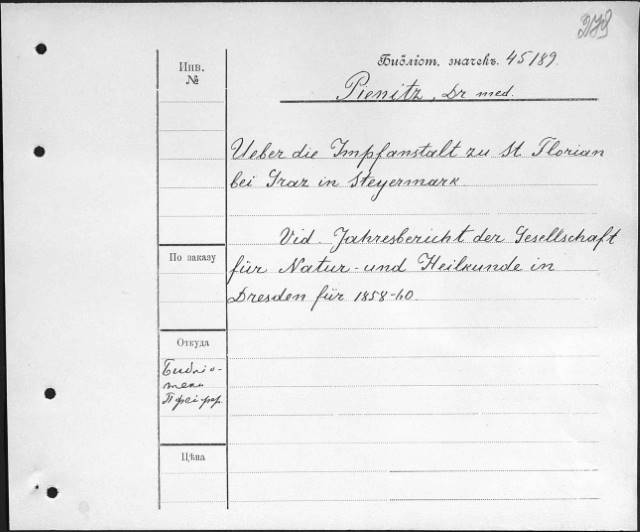 Библіот. значекъ. 45/89.
Инв.
№
Pienitz, Dr med.
Ueber die Impfanstalt zu St. Florian
bei Graz in Steyermark.
Vid. Jahresbericht der Gesellschaft
По заказу
für Natur- und Heilkunde in
Dresden für 1858-60.
Откуда
Библіо-
теки
Цѣна